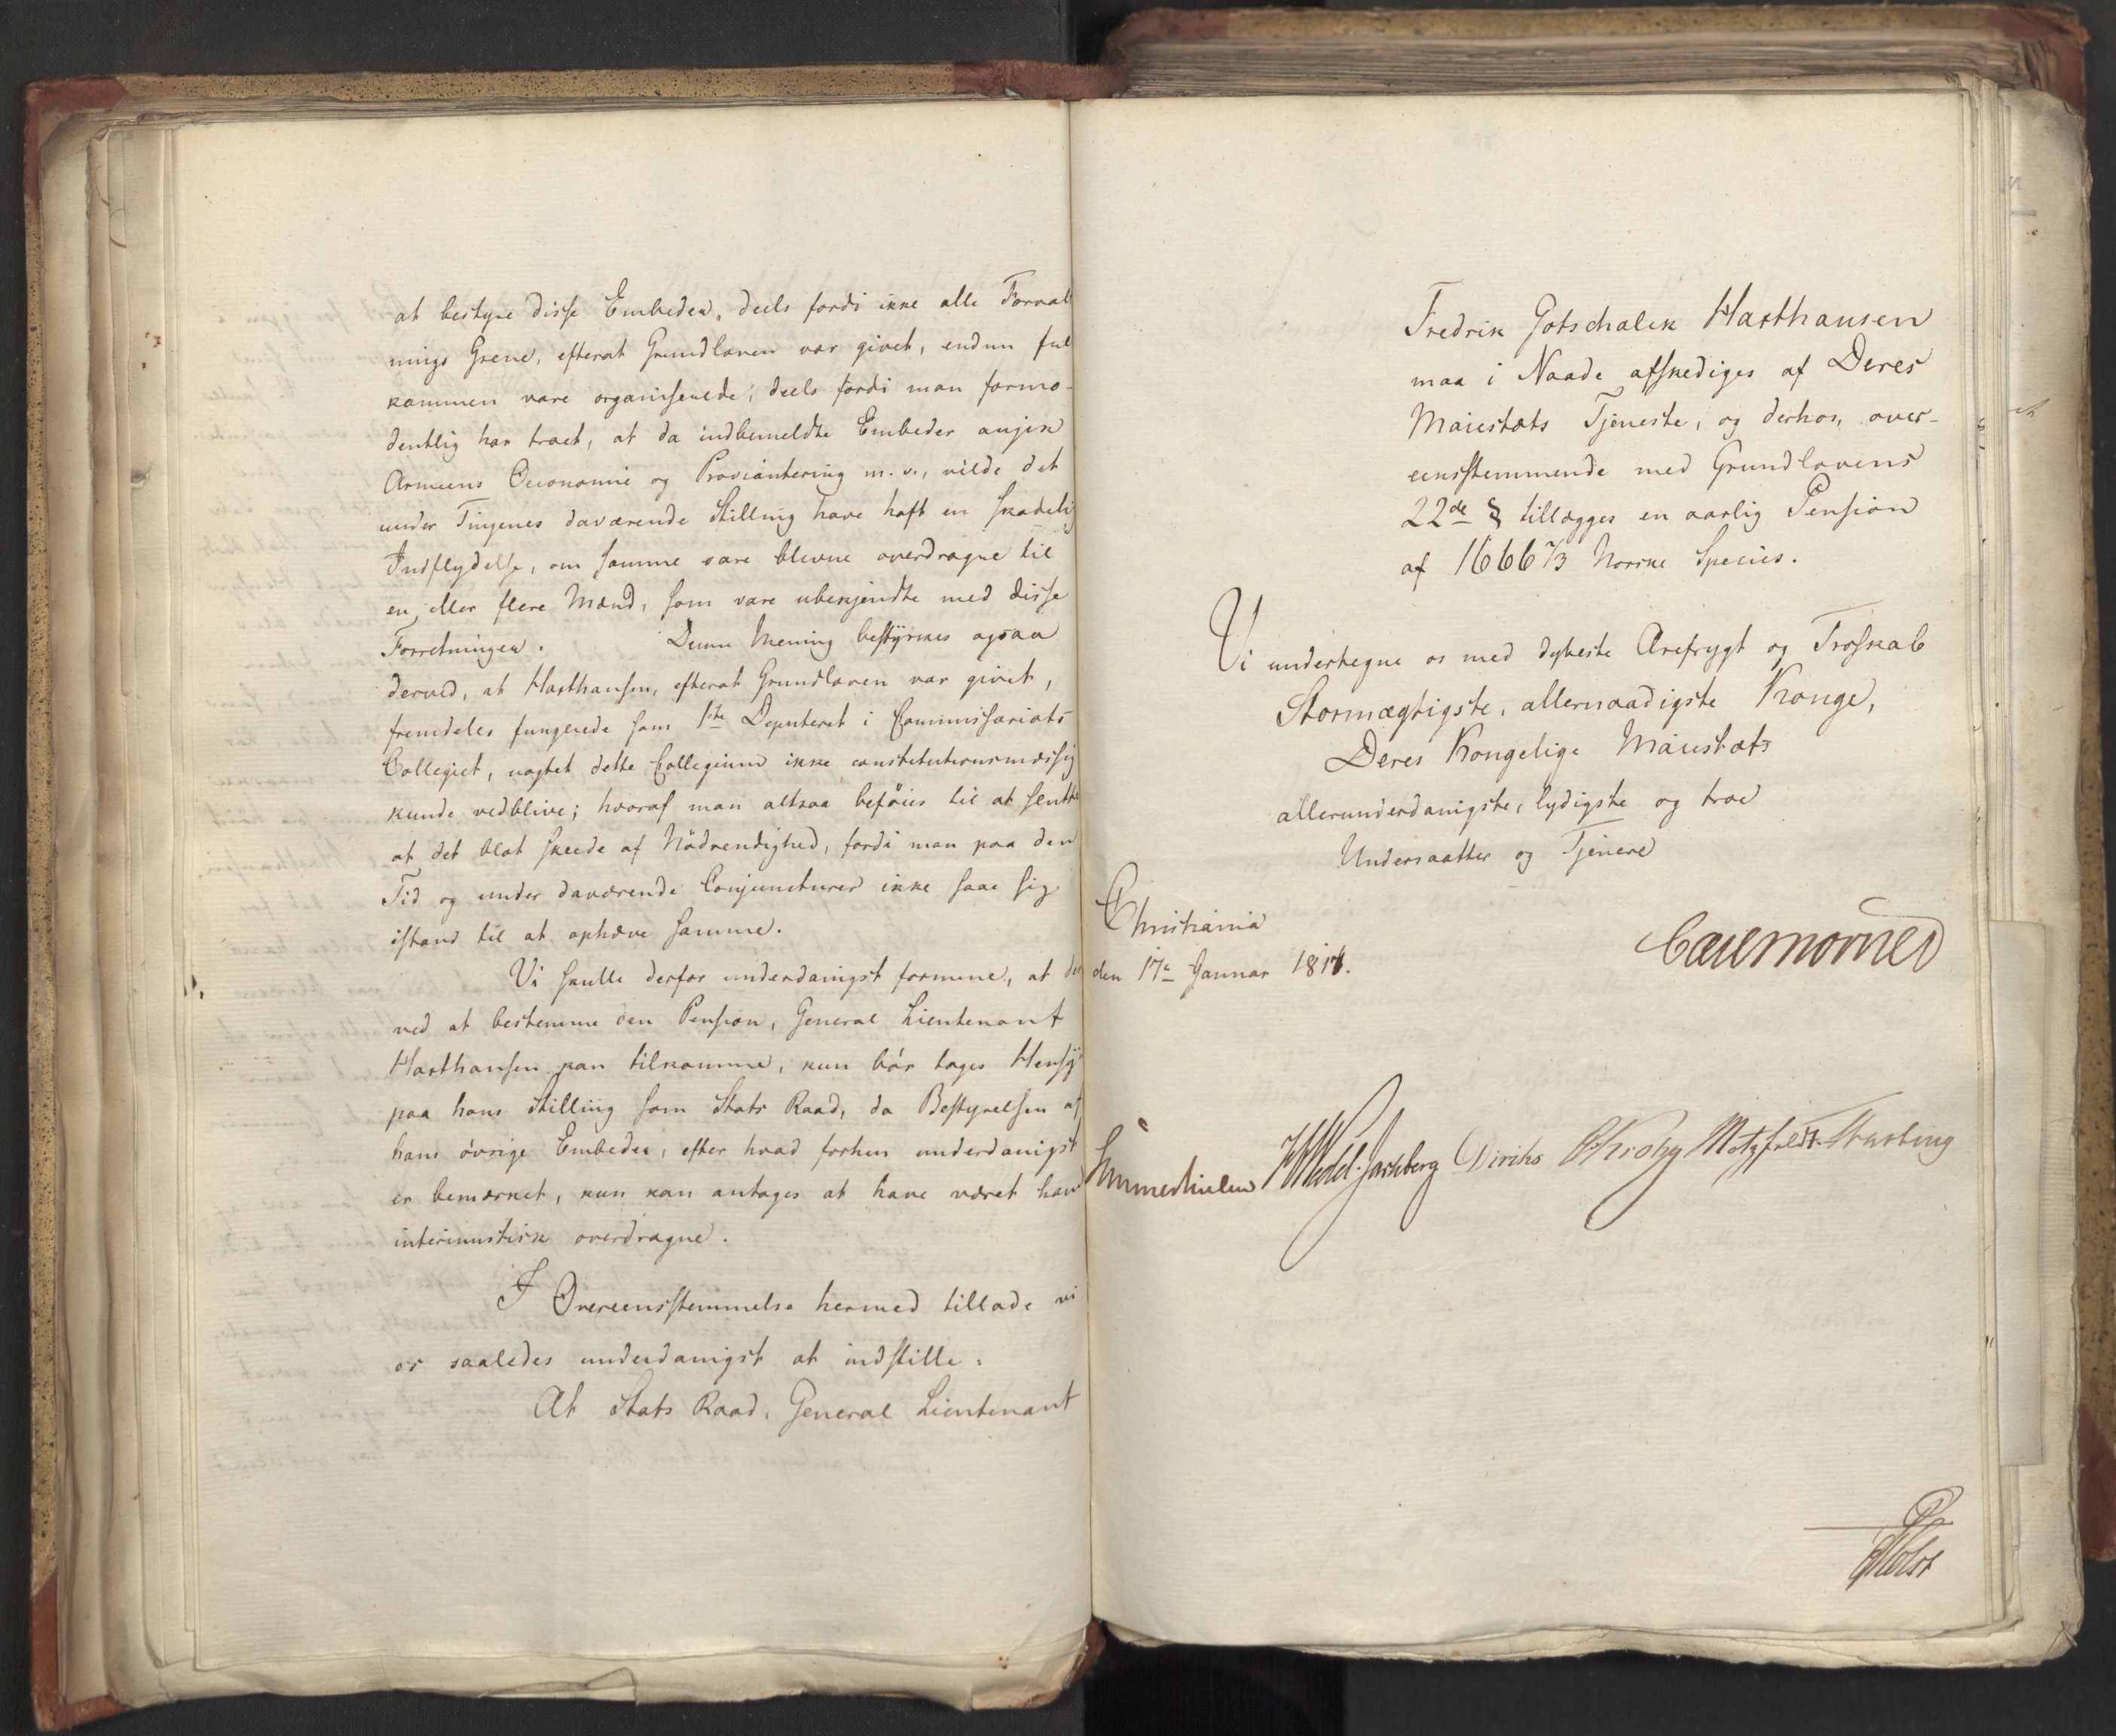 at bestyre disse Embeder, deels fordi ikke alle Forval
nings Grene, efterat Grundloven var givet, endnu ful
kommen vare organiserede; deels fordi man formo-
dentlig har troet, at da indbemeldte Embeder angik
Armeens Oeconomie og Proviantering m. v., vilde det
under Tingenes daværende Stilling have haft en skadelig
Indflydelse, om samme vare blevne overdragne til
en eller flere Mænd, som vare ubekjendte med disse
Forretninger. Denne Mening bestyrkes ogsaa
derved, at Haxthausen, efterat Grundloven var givet,
fremdeles fungerede som 1ste Deputeret i Commissariats
Collegiet, uagtet dette Collegium ikke constitutionsmæssig
kunde vedblive; hvoraf man altsaa beføies til at slutte
at det blot skeede af Nødvendighed, fordi man paa den
Tid og under daværende Conjuncturer ikke saae sig
istand til at ophæve samme.
Vi skulle derfor underdanigst formene, at der
ved at bestemme den Pension, General Lieutenant
Haxthausen kan tilkomme, kun bør tages Hensyn
paa hans Stilling som Stats Raad, da Bestyrelsen af
hans øvrige Embeder, efter hvad forhen underdanigst
er bemærket, kun kan antages at have været ham
interimistisk overdragne.
I Overeensstemmelse hermed tillade vi
os saaledes underdanigst at indstille:
At Stats Raad, General Lieutenant
Fredrik Gotschalck Haxthausen
maa i Naade afskediges af Deres
Maiestæts Tjeneste, og derhos, over-
eensstemmende med Grundlovens
22de § tillægges en aarlig Pension
af 1666 2/3 Norske Species.
Vi undertegne os med dybeste Ærefrygt og Troskab
Stormægtigste, allernaadigste Konge,
Deres Kongelige Maiestæts
allerunderdanigste, lydigste og troe
Undersaatter og Tjenere
Christiania
den 17de Januar 1817.
Carl Mörner
Sommerhielm HWedel Jarlsberg Diriks Krohg Motzfeldt Fasting
Holst